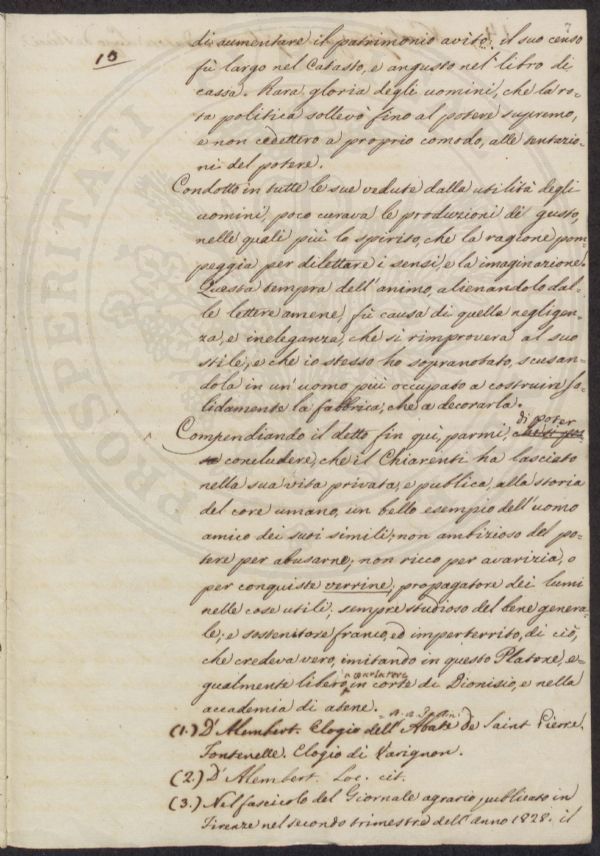 10
di aumentare il patrimonio avito, il suo censo
fù largo nel Catasto, e angusto nel libro di
cassa. Rara gloria degli uomini, che la ro-
ta politica sollevò fino al potere supremo,
e non cedettero a proprio comodo, alle tentazio-
ni del potere.
Condotto in tutte le sue vedute dalla utilità degli
uomini, poco curava le produzioni di gusto,
nelle quali più lo spirito, che la ragione pom-
peggia per dilettare i sensi, e la imaginazione.
Questa tempra dell'animo, alienandolo dal-
le lettere amene, fù causa di quella negligen-
za, e ineleganza, che si rimprovera al suo
stile, e che io stesso ho sopranotato, scusan-
dola in un'uomo più occupato a costruire so-
lidamente la fabbrica, che a decorarla.
di poter
Compendiando il detto fin quì, parmi,
concludere, che il Chiarenti ha lasciato
nella sua vita privata, e publica, alla storia
del core umano, un bello esempio dell'uomo
amico dei suoi simili; non ambizioso del po-
tere per abusarne; non ricco per avarizia, o
per conquiste verrine; propagatore dei lumi
nelle cose utili; sempre studioso del bene genera-
le; e sostenitore franco, ed imperterrito, di ciò,
che credeva vero, imitando in questo Platone, e-
gualmente libero, in corte di Dionisio, e nella
accademia di atene.
(1.) D'Alembert. Elogio dell'Abate de Saint Pierre.
Fontenelle. Elogio di Varignon.
(2.) D'Alembert. Loc. cit.
(3.) Nel fascicolo del Giornale agrario, publicato in
Firenze nel secondo trimestre dell'anno 1828. il
PROSPERITATI